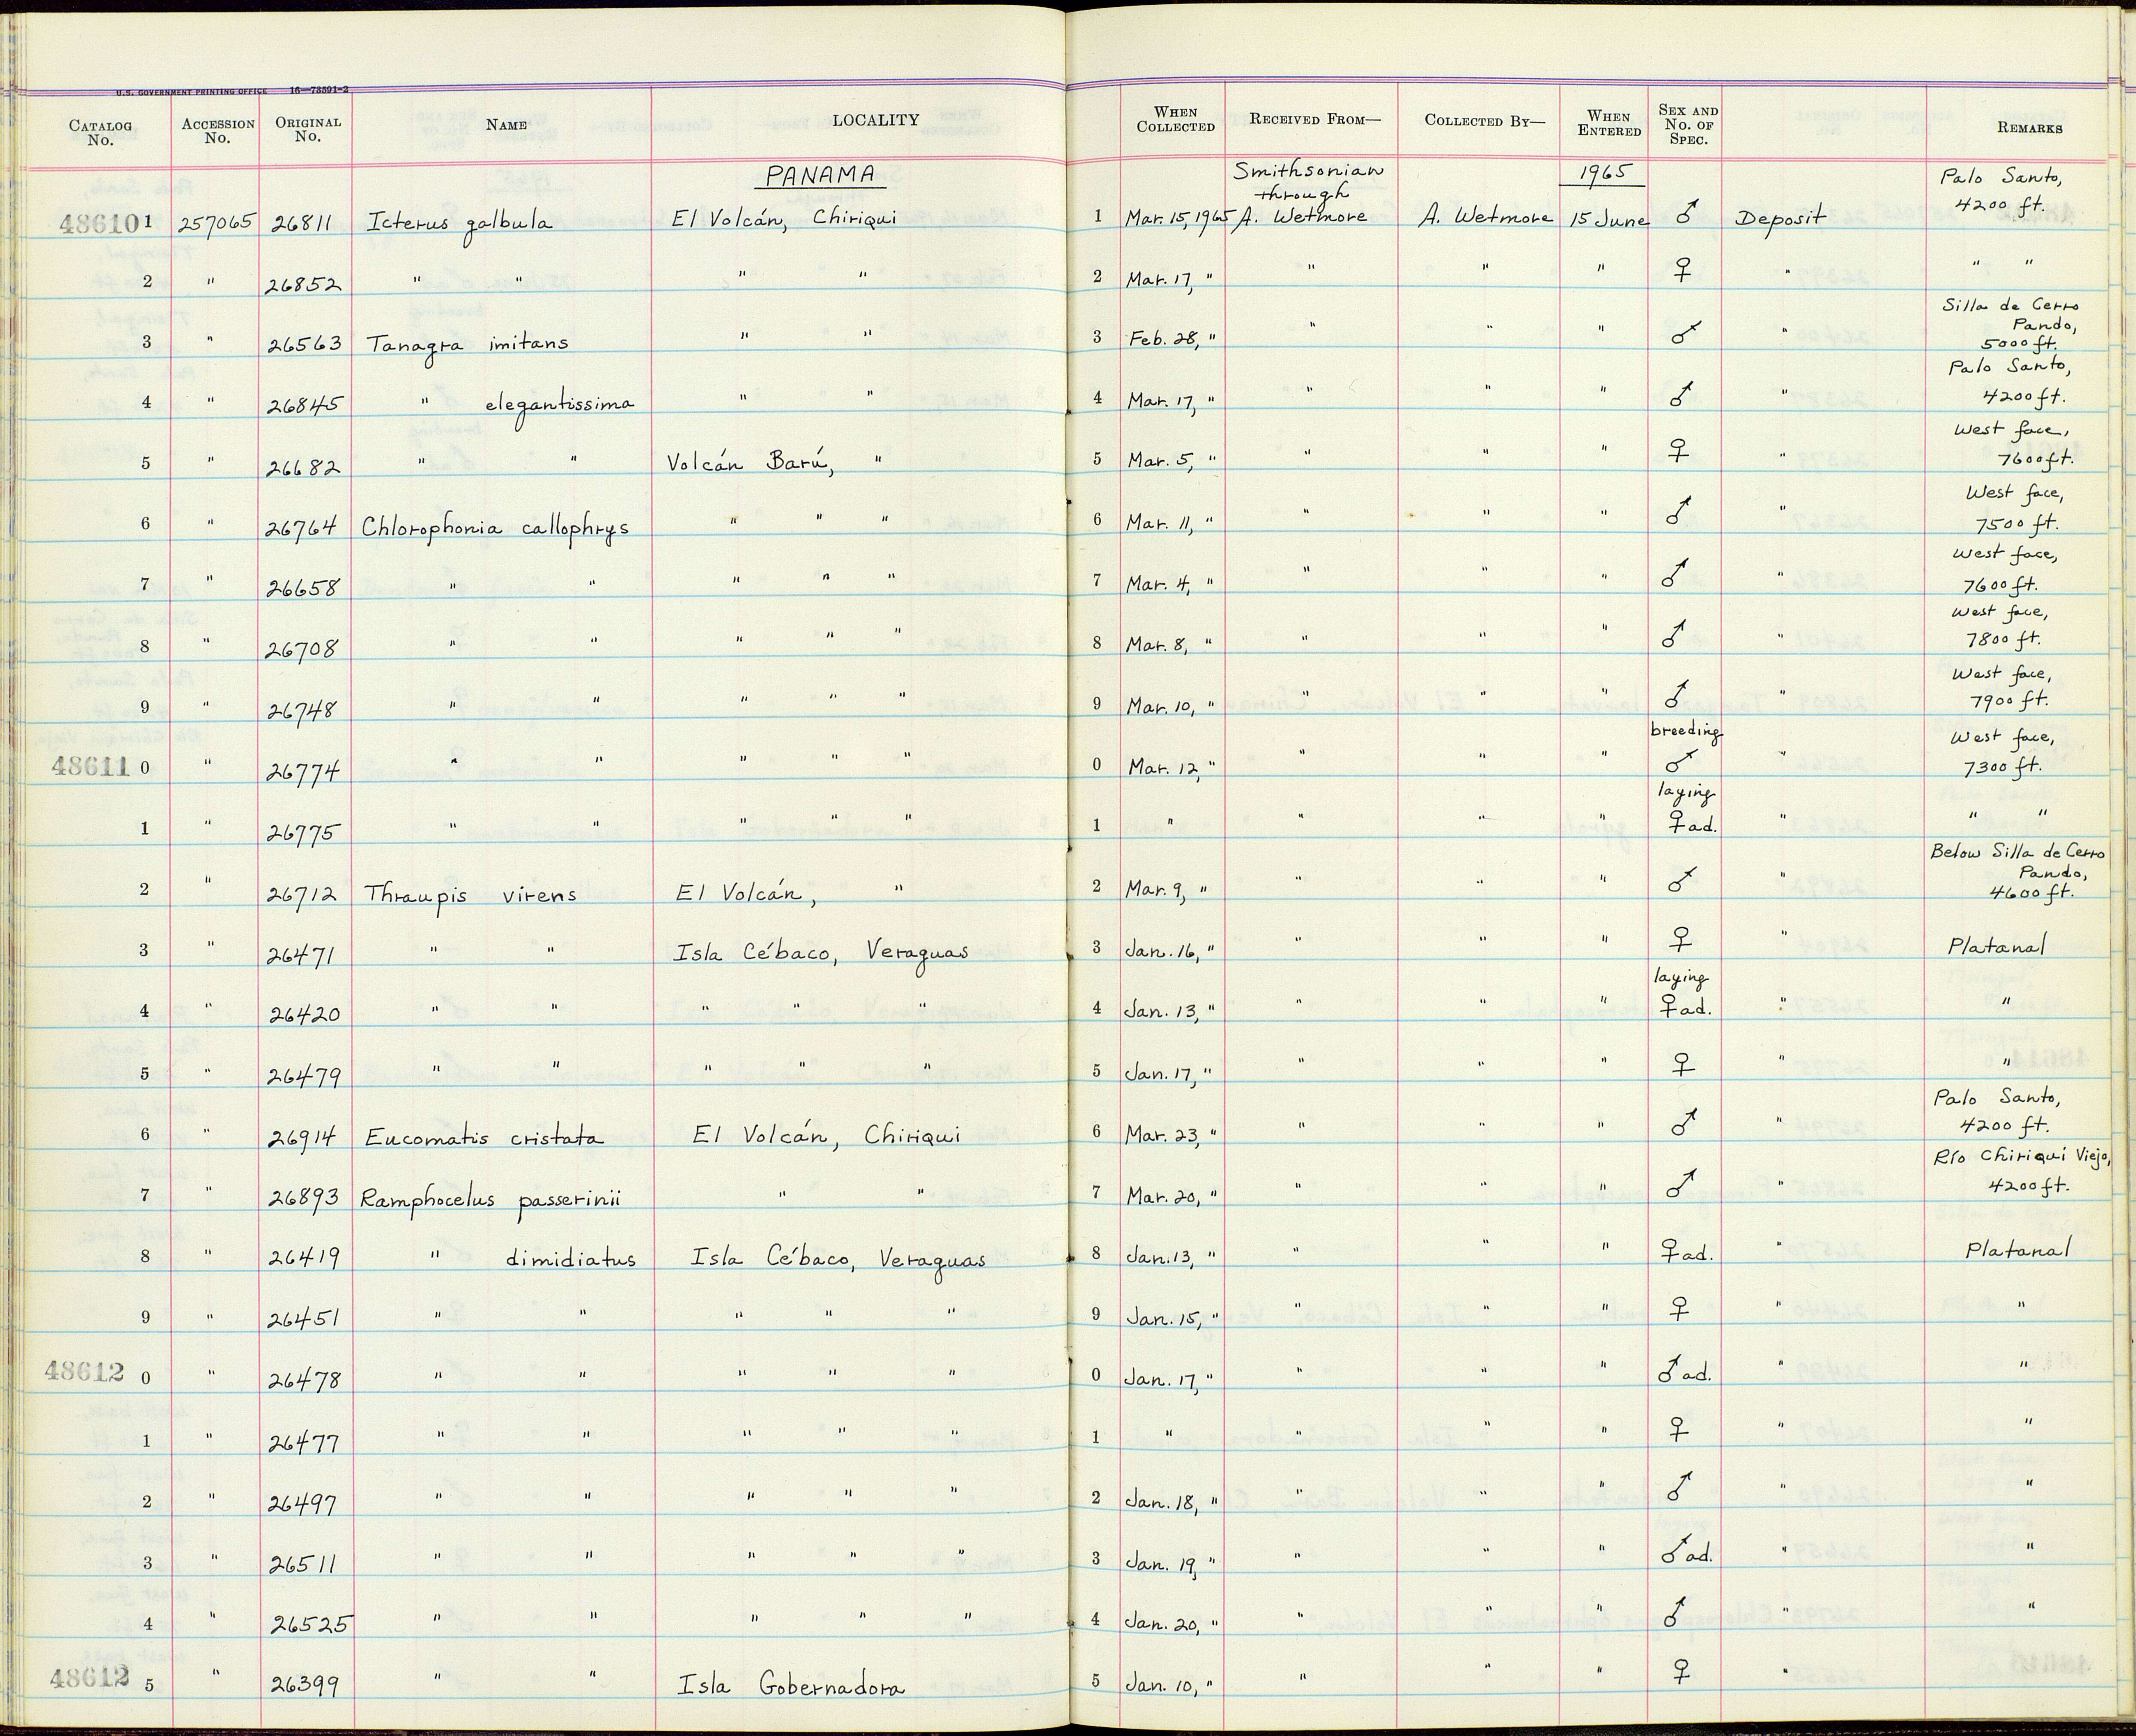 U.S. GOVERNMENT PRINTING OFFICE 16—73591-2
CATALOG No. ACCESSION No. ORIGINAL No. NAME LOCALITY WHEN COLLECTED RECEIVED FROM— COLLECTED BY— WHEN ENTERED SEX AND No. OF SPEC. REMARKS
PANAMA Smithsonian through 1965 Palo Santo,
486101 257065 26811 Icterus galbula El Volcán, Chiriqui 1 Mar. 15, 1965 A. Wetmore A. Wetmore 15 June ♂ Deposit 4200 ft.
2 " 26852 " " " " 2 Mar. 17, " " " " ♀ " " "
3 " 26563 Tanagra imitans " " 3 Feb. 28, " " " " ♂ " Silla de Cerro Pando, 5000 ft.
4 " 26845 " elegantissima " " 4 Mar. 17, " " " " ♂ " Palo Santo, 4200 ft.
5 " 26682 " " Volcán Barú, " 5 Mar. 5, " " " " ♀ " West face, 7600 ft.
6 " 26764 Chlorophonia callophrys " " " 6 Mar. 11, " " " " ♂ " West face, 7500 ft.
7 " 26658 " " " " " 7 Mar. 4, " " " " ♂ " West face, 7600 ft.
8 " 26708 " " " " " 8 Mar. 8, " " " " ♂ " West face, 7800 ft.
9 " 26748 " " " " " 9 Mar. 10, " " " " ♂ " West face, 7900 ft.
48611 0 " 26774 " " " " " 0 Mar. 12, " " " " breeding ♂ " West face, 7300 ft.
1 " 26775 " " " " " 1 " " " " laying ♀ ad. " " "
2 " 26712 Thraupis virens El Volcán, " 2 Mar. 9, " " " " ♂ " Below Silla de Cerro Pando, 4600 ft.
3 " 26471 " " Isla Cébaco, Veraguas 3 Jan. 16, " " " " ♀ " Platanal
4 " 26420 " " " " " 4 Jan. 13, " " " " laying ♀ ad. " "
5 " 26479 " " " " " 5 Jan. 17, " " " " ♀ " "
6 " 26914 Eucomatis cristata El Volcán, Chiriqui 6 Mar. 23, " " " " ♂ " Palo Santo, 4200 ft.
7 " 26893 Ramphocelus passerinii " " 7 Mar. 20, " " " " ♂ " Río Chiriquí Viejo, 4200 ft.
8 " 26419 " dimidiatus Isla Cébaco, Veraguas 8 Jan. 13, " " " " ♀ ad. " Platanal
9 " 26451 " " " " " 9 Jan. 15, " " " " ♀ " "
48612 0 " 26478 " " " " " 0 Jan. 17, " " " " ♂ ad. " "
1 " 26477 " " " " " 1 " " " " ♀ " "
2 " 26497 " " " " " 2 Jan. 18, " " " " ♂ " "
3 " 26511 " " " " " 3 Jan. 19, " " " " ♂ ad. " "
4 " 26525 " " " " " 4 Jan. 20, " " " " ♂ " "
48612 5 " 26399 " " Isla Gobernadora 5 Jan. 10, " " " " ♀ "